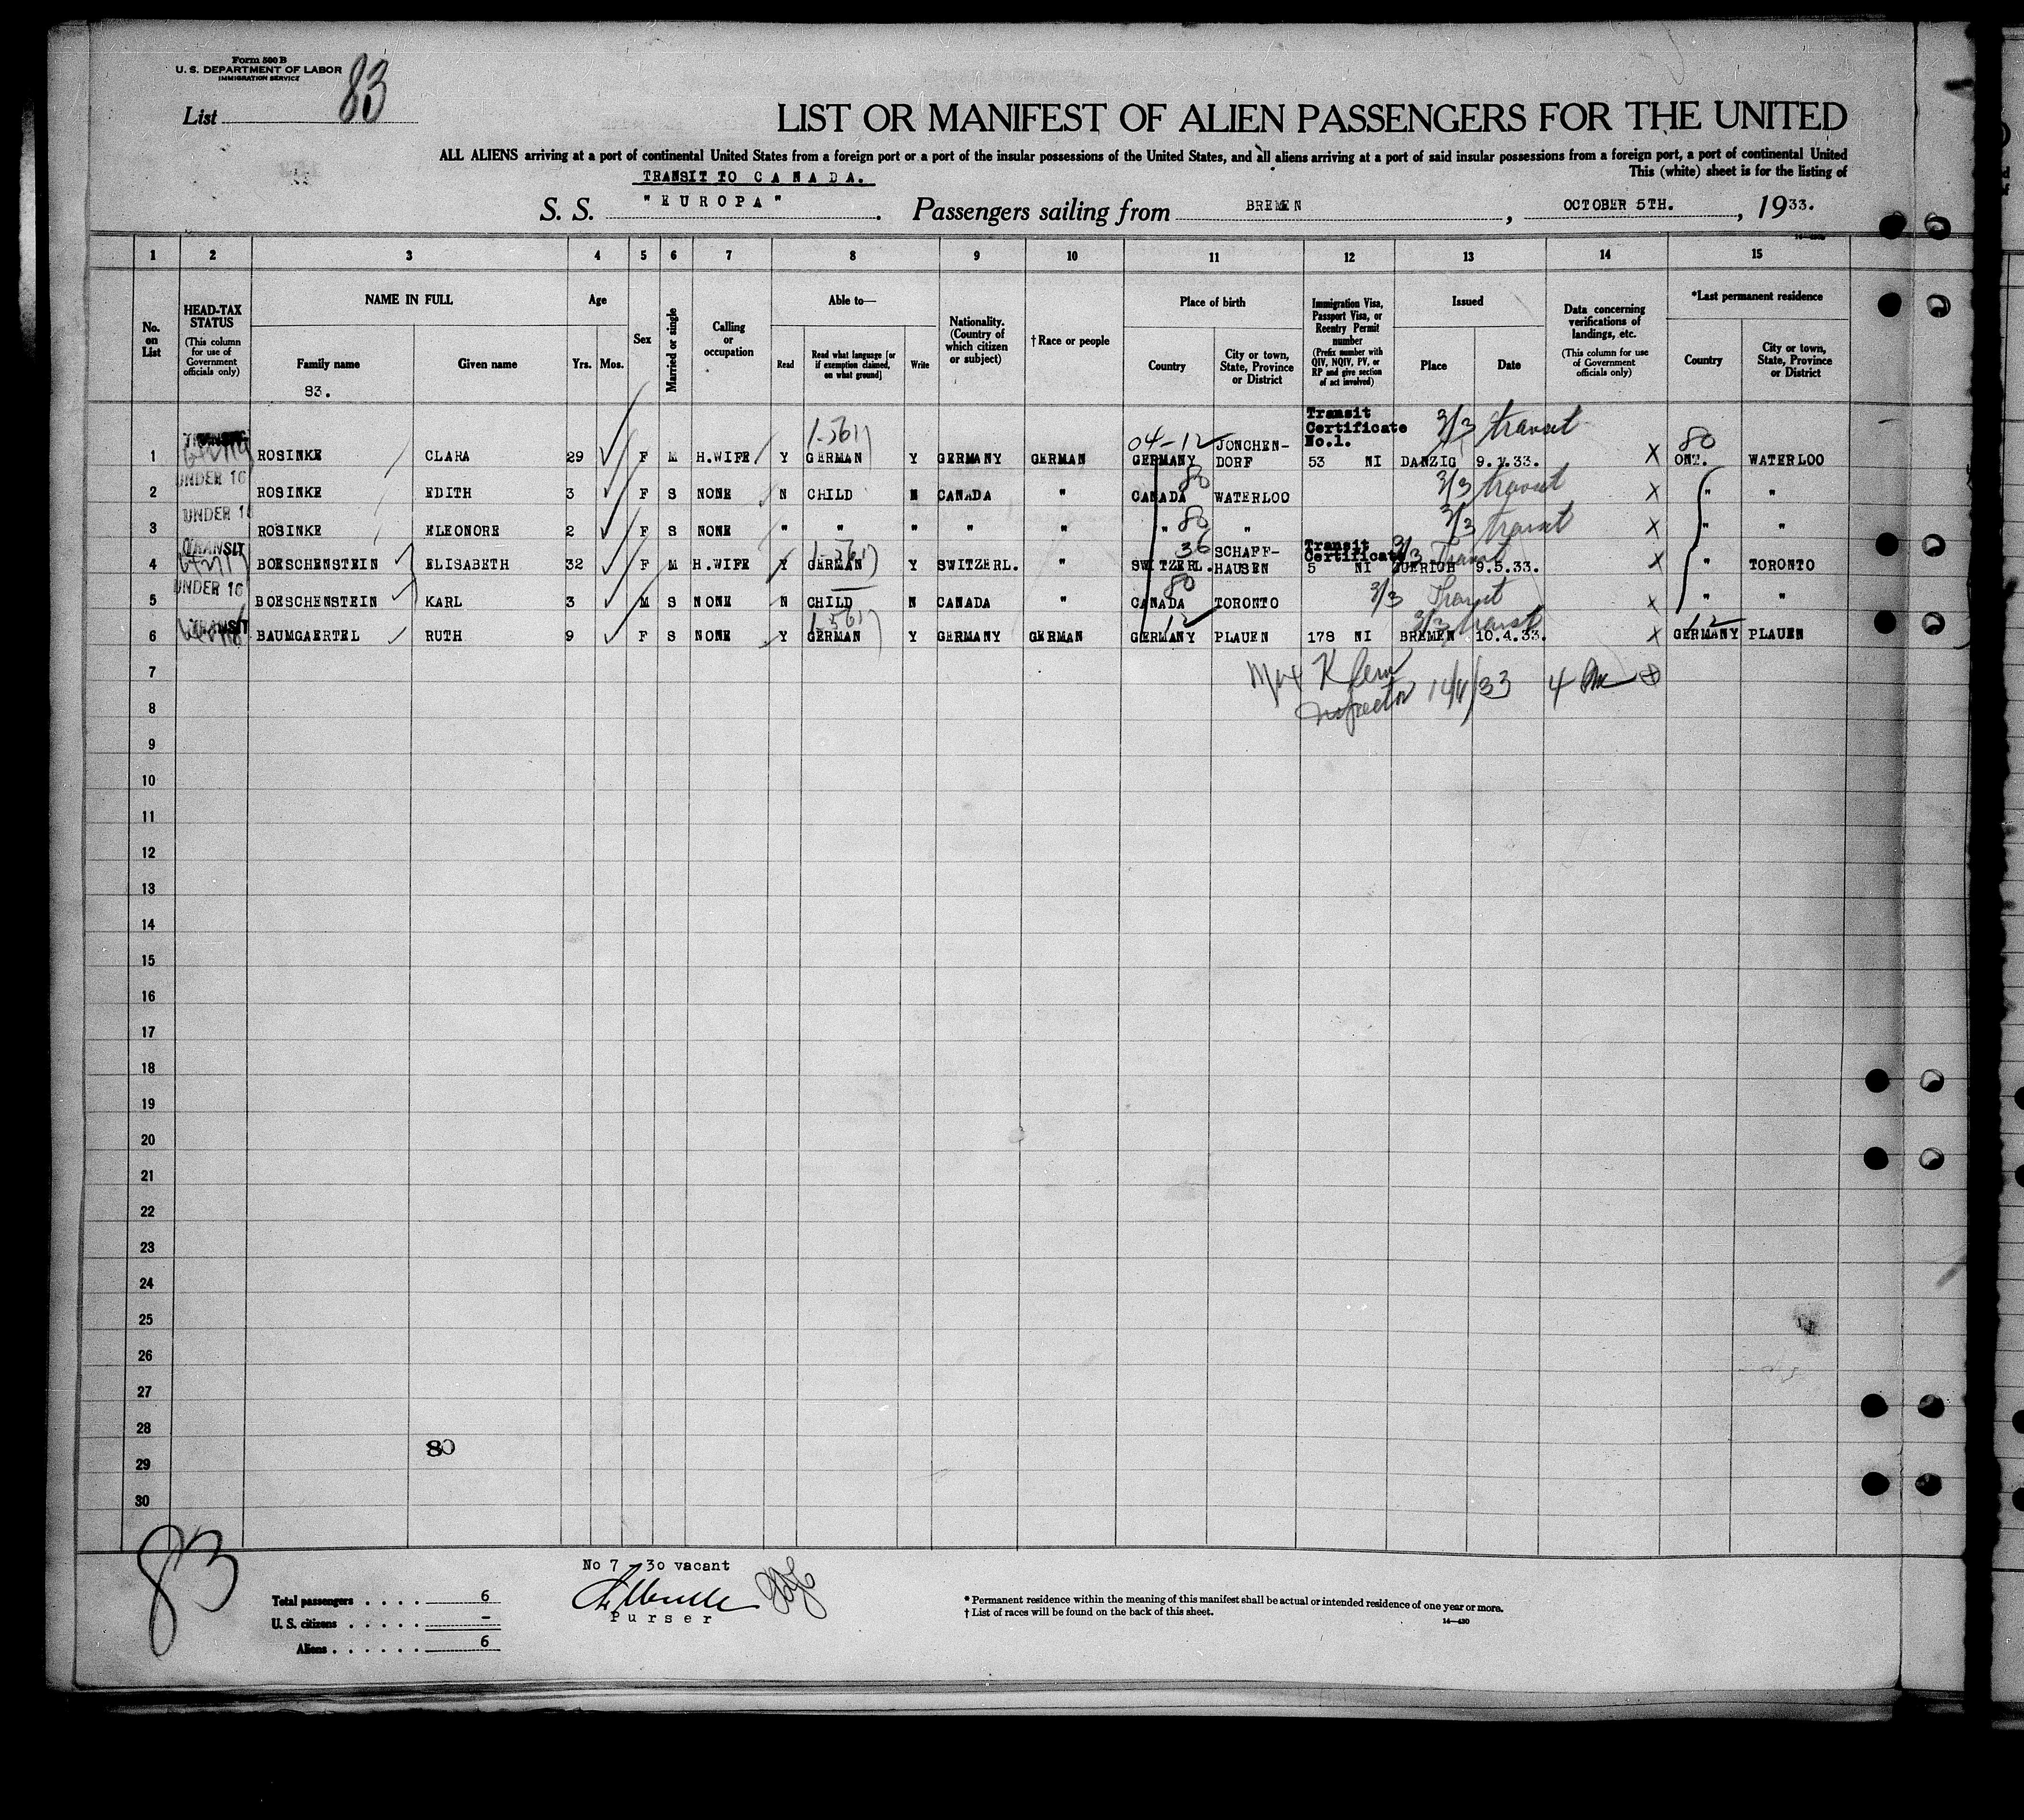 Form 500 B
U. S. DEPARTMENT OF LABOR
IMMIGRATION SERVICE
List 83
LIST OR MANIFEST OF ALIEN PASSENGERS FOR THE UNITED
ALL ALIENS arriving at a port of continental United States from a foreign port or a port of the insular possessions of the United States, and all aliens arriving at a port of said insular possessions from a foreign port, a port of continental United
TRANSIT TO CANADA. This (white) sheet is for the listing of
S. S. "EUROPA". Passengers sailing from BREMEN, OCTOBER 5TH., 1933.
1 2 3 4 5 6 7 8 9 10 11 12 13 14 15
No. on List
HEAD-TAX STATUS (This column for use of Government officials only)
NAME IN FULL
Family name
Given name
83.
Age
Yrs. Mos.
Sex
Married or single
Calling or occupation
Able to—
Read
Read what language [or if exemption claimed, on what ground]
Write
Nationality. (Country of which citizen or subject)
†Race or people
Place of birth
Country
City or town, State, Province or District
Immigration Visa, Passport Visa, or Reentry Permit number (Prefix number with QIV, NQIV, PV, or RP and give section of act involved)
Issued
Place
Date
Data concerning verifications of landings, etc. (This column for use of Government officials only)
*Last permanent residence
Country
City or town, State, Province or District
Transit Certificate No.1. 3/3 transit
04-12 80
1 ROSINKE CLARA 29 F M H.WIFE Y GERMAN Y GERMANY GERMAN GERMANY JONCHEN-DORF 53 NI DANZIG X ONT. WATERLOO
UNDER 16
2 ROSINKE EDITH 3 F S NONE N CHILD N CANADA " CANADA 80 WATERLOO 3/3 transit X " "
UNDER 16
3 ROSINKE ELEONORE 2 F S NONE " " " " " " 80 " 3/3 transit X " "
TRANSIT
4 BOESCHENSTEIN ELISABETH 32 F M H.WIFE Y GERMAN Y SWITZERL. " SWITZERL. 36 SCHAFF-HAUSEN Transit Certificate 5 NI ZUERICH 9.5.33. 3/3 Transit X " TORONTO
UNDER 16
5 BOESCHENSTEIN KARL 3 M S NONE N CHILD N CANADA " CANADA 80 TORONTO 3/3 Transit X " "
TRANSIT
6 BAUMGAERTEL RUTH 9 F S NONE Y GERMAN Y GERMANY GERMAN GERMANY 12 PLAUEN 178 NI BREMEN 10.4.33. 3/3 transit X GERMANY 12 PLAUEN
7
Inspector
8
9
10
11
12
13
14
15
16
17
18
19
20
21
22
23
24
25
26
27
28
80
29
30
83
No 7 30 vacant
Purser
Total passengers . . . . 6
U. S. citizens . . . . . –
Aliens . . . . . . 6
* Permanent residence within the meaning of this manifest shall be actual or intended residence of one year or more.
† List of races will be found on the back of this sheet.
14—430